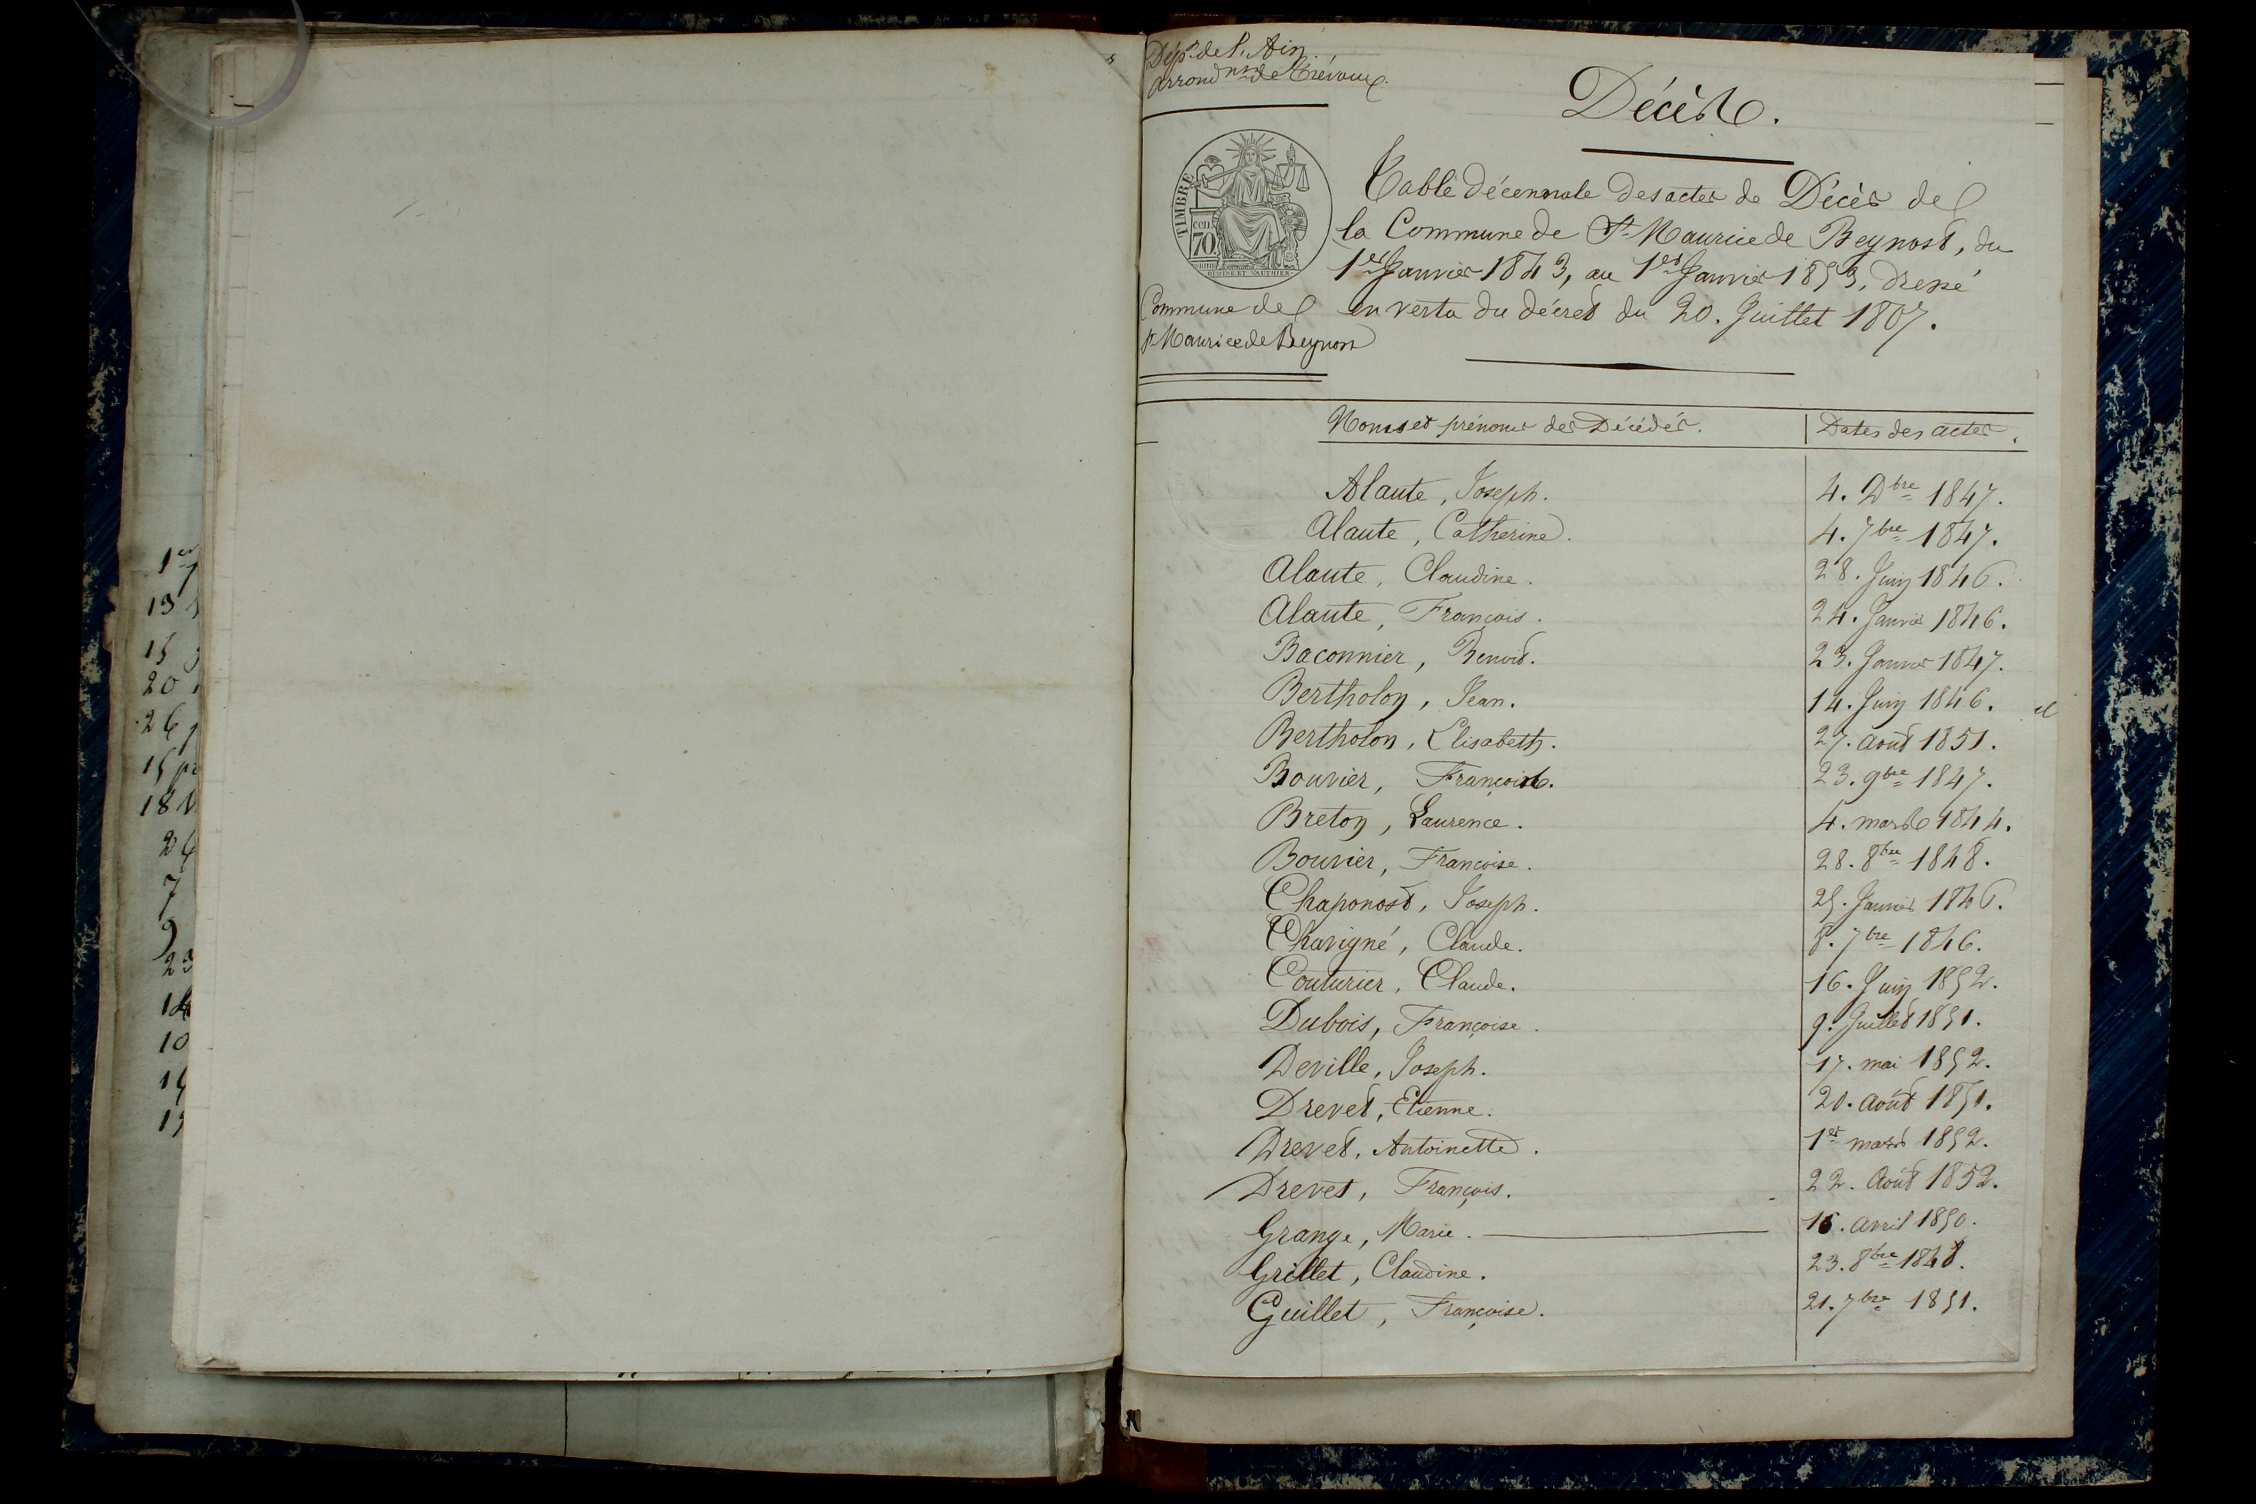 1er
13
15
20
26
15
18
26
7
9
23
14
10
14
15
Dépt. de l'Ain.
Arrondnt de Trévoux.
Décès.
TIMBRE
cen.
70.
Table décennale des actes de Décès de
la Commune de St Maurice de Beynost, du
1er Janvier 1843, au 1er Janvier 1853, dressé
Commune de
en vertu du décret du 20. Juillet 1807.
St Maurice de Beynost
Noms et prénoms des Décédés. Dates des actes.
Alaute, Joseph. 4. Dbre 1847.
Alaute, Catherine. 4. 7bre 1847.
Alaute, Claudine. 28. Juin 1846.
Alaute, François. 24. Janvier 1846.
Baconnier, Benoit. 23. Janvier 1847.
Bertholon, Jean. 14. Juin 1846.
Bertholon, Elisabeth. 27. août 1851.
Bouvier, François. 23. 9bre 1847.
Breton, Laurence. 4. mars 1844.
Bouvier, Françoise. 28. 8bre 1848.
Chaponost, Joseph. 25. Janvier 1846.
Chavigné, Claude. 8. 7bre 1846.
Couturier, Claude. 16. Juin 1852.
Dubois, Françoise. 9. Juillet 1851.
Deville, Joseph. 17. mai 1852.
Drevet, Etienne. 20. août 1851.
Drevet, Antoinette. 1er mars 1852.
Drevet, François. 22. Août 1852.
Grange, Marie. 16. avril 1850.
Grillet, Claudine. 23. 8bre 1848.
Guillet, Françoise. 21. 7bre 1851.